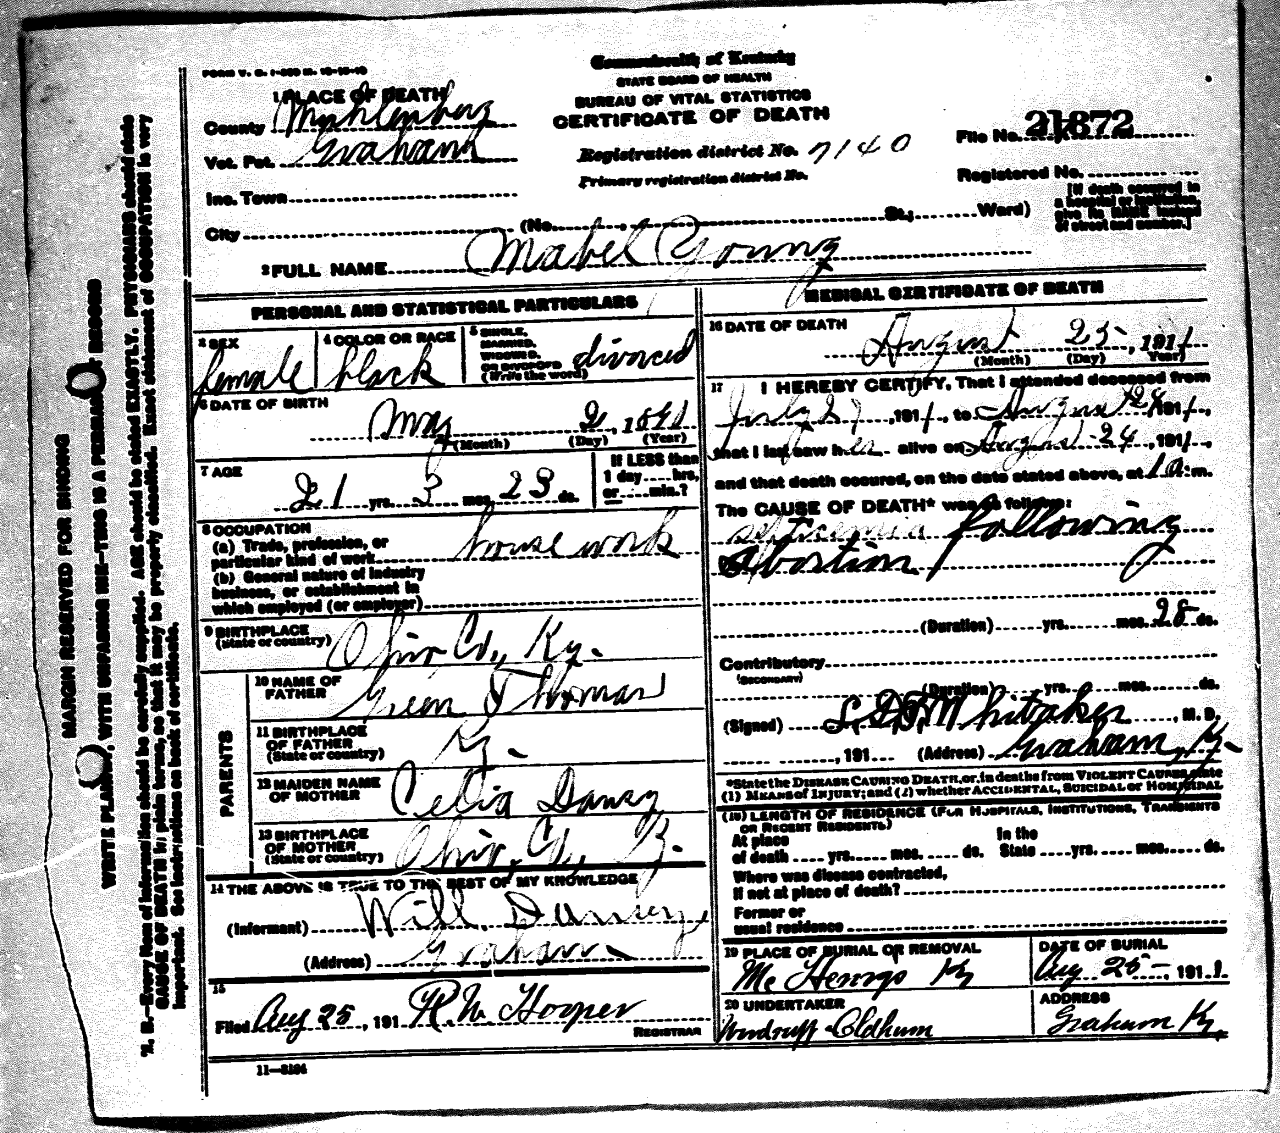 FORM V. S. 1-
Commonwealth of Kentucky
STATE BOARD OF HEALTH
BUREAU OF VITAL STATISTICS
CERTIFICATE OF DEATH
1 PLACE OF DEATH
County Muhlenberg
Vot. Pct. Graham
Inc. Town
City (No. St.; Ward)
Registration district No. 7140
Primary registration district No.
File No. 21872
Registered No.
[If death occurred in
a hospital or institution,
give its NAME instead
of street and number.]
2 FULL NAME Mabel Young
PERSONAL AND STATISTICAL PARTICULARS
3 SEX female
4 COLOR OR RACE black
5 SINGLE,
MARRIED,
WIDOWED,
OR DIVORCED
(Write the word) divorced
6 DATE OF BIRTH
May 2, 18
(Month) (Day) (Year)
7 AGE
21 yrs. 3 mos. 23 ds.
If LESS than
1 day hrs,
or min.?
8 OCCUPATION
(a) Trade, profession, or
particular kind of work house work
(b) General nature of industry
business, or establishment in
which employed (or employer)
9 BIRTHPLACE
(State or country) Ohio Co., Ky.
PARENTS
10 NAME OF
FATHER Green Thomas
11 BIRTHPLACE
OF FATHER
(State or country) Ky.
12 MAIDEN NAME
OF MOTHER Celia
13 BIRTHPLACE
OF MOTHER
(State or country) Ohio, Co, Ky.
14 THE ABOVE IS TRUE TO THE BEST OF MY KNOWLEDGE
(Informant) Will
(Address) Graham
15
Filed Aug 25, 191 R. W. Hooper
REGISTRAR
11-
MEDICAL CERTIFICATE OF DEATH
16 DATE OF DEATH
August 25, 1911
(Month) (Day) Year)
17 I HEREBY CERTIFY, That I attended deceased from
July 27, 1911, to August 24 1911,
that I last saw her alive on August 24, 1911,
and that death occured, on the date stated above, at 1 a. m.
The CAUSE OF DEATH* was as follows:
septicemia following
abortion
(Duration) yrs. mos. 28 ds.
Contributory
(SECONDARY)
(Duration) yrs. mos. ds.
(Signed) Whitaker, M. D.
, 191 (Address) Graham, Ky
*State the DISEASE CAUSING DEATH, or, in deaths from VIOLENT CAUSES, state
(1) MEANS of INJURY; and (2) whether ACCIDENTAL, SUICIDAL or HOMICIDAL
(18) LENGTH OF RESIDENCE (FOR HOSPITALS, INSTITUTIONS, TRANSIENTS
OR RECENT RESIDENTS)
At place
of death yrs. mos. ds.
In the
State yrs. mos. ds.
Where was disease contracted,
if not at place of death?
Former or
usual residence
19 PLACE OF BURIAL OR REMOVAL
Mc Henry Ky
DATE OF BURIAL
Aug 25-, 1911
20 UNDERTAKER
Woodruff-Oldham
ADDRESS
Graham Ky.
MARGIN RESERVED FOR BINDING
WRITE PLAINLY, WITH UNFADING INK-THIS IS A PERMANENT RECORD
N. B.-Every item of information should be carefully supplied. AGE should be stated EXACTLY. PHYSICIANS should state
CAUSE OF DEATH in plain terms, so that it may be properly classified. Exact statement of OCCUPATION is very
important. See instructions on back of certificate.